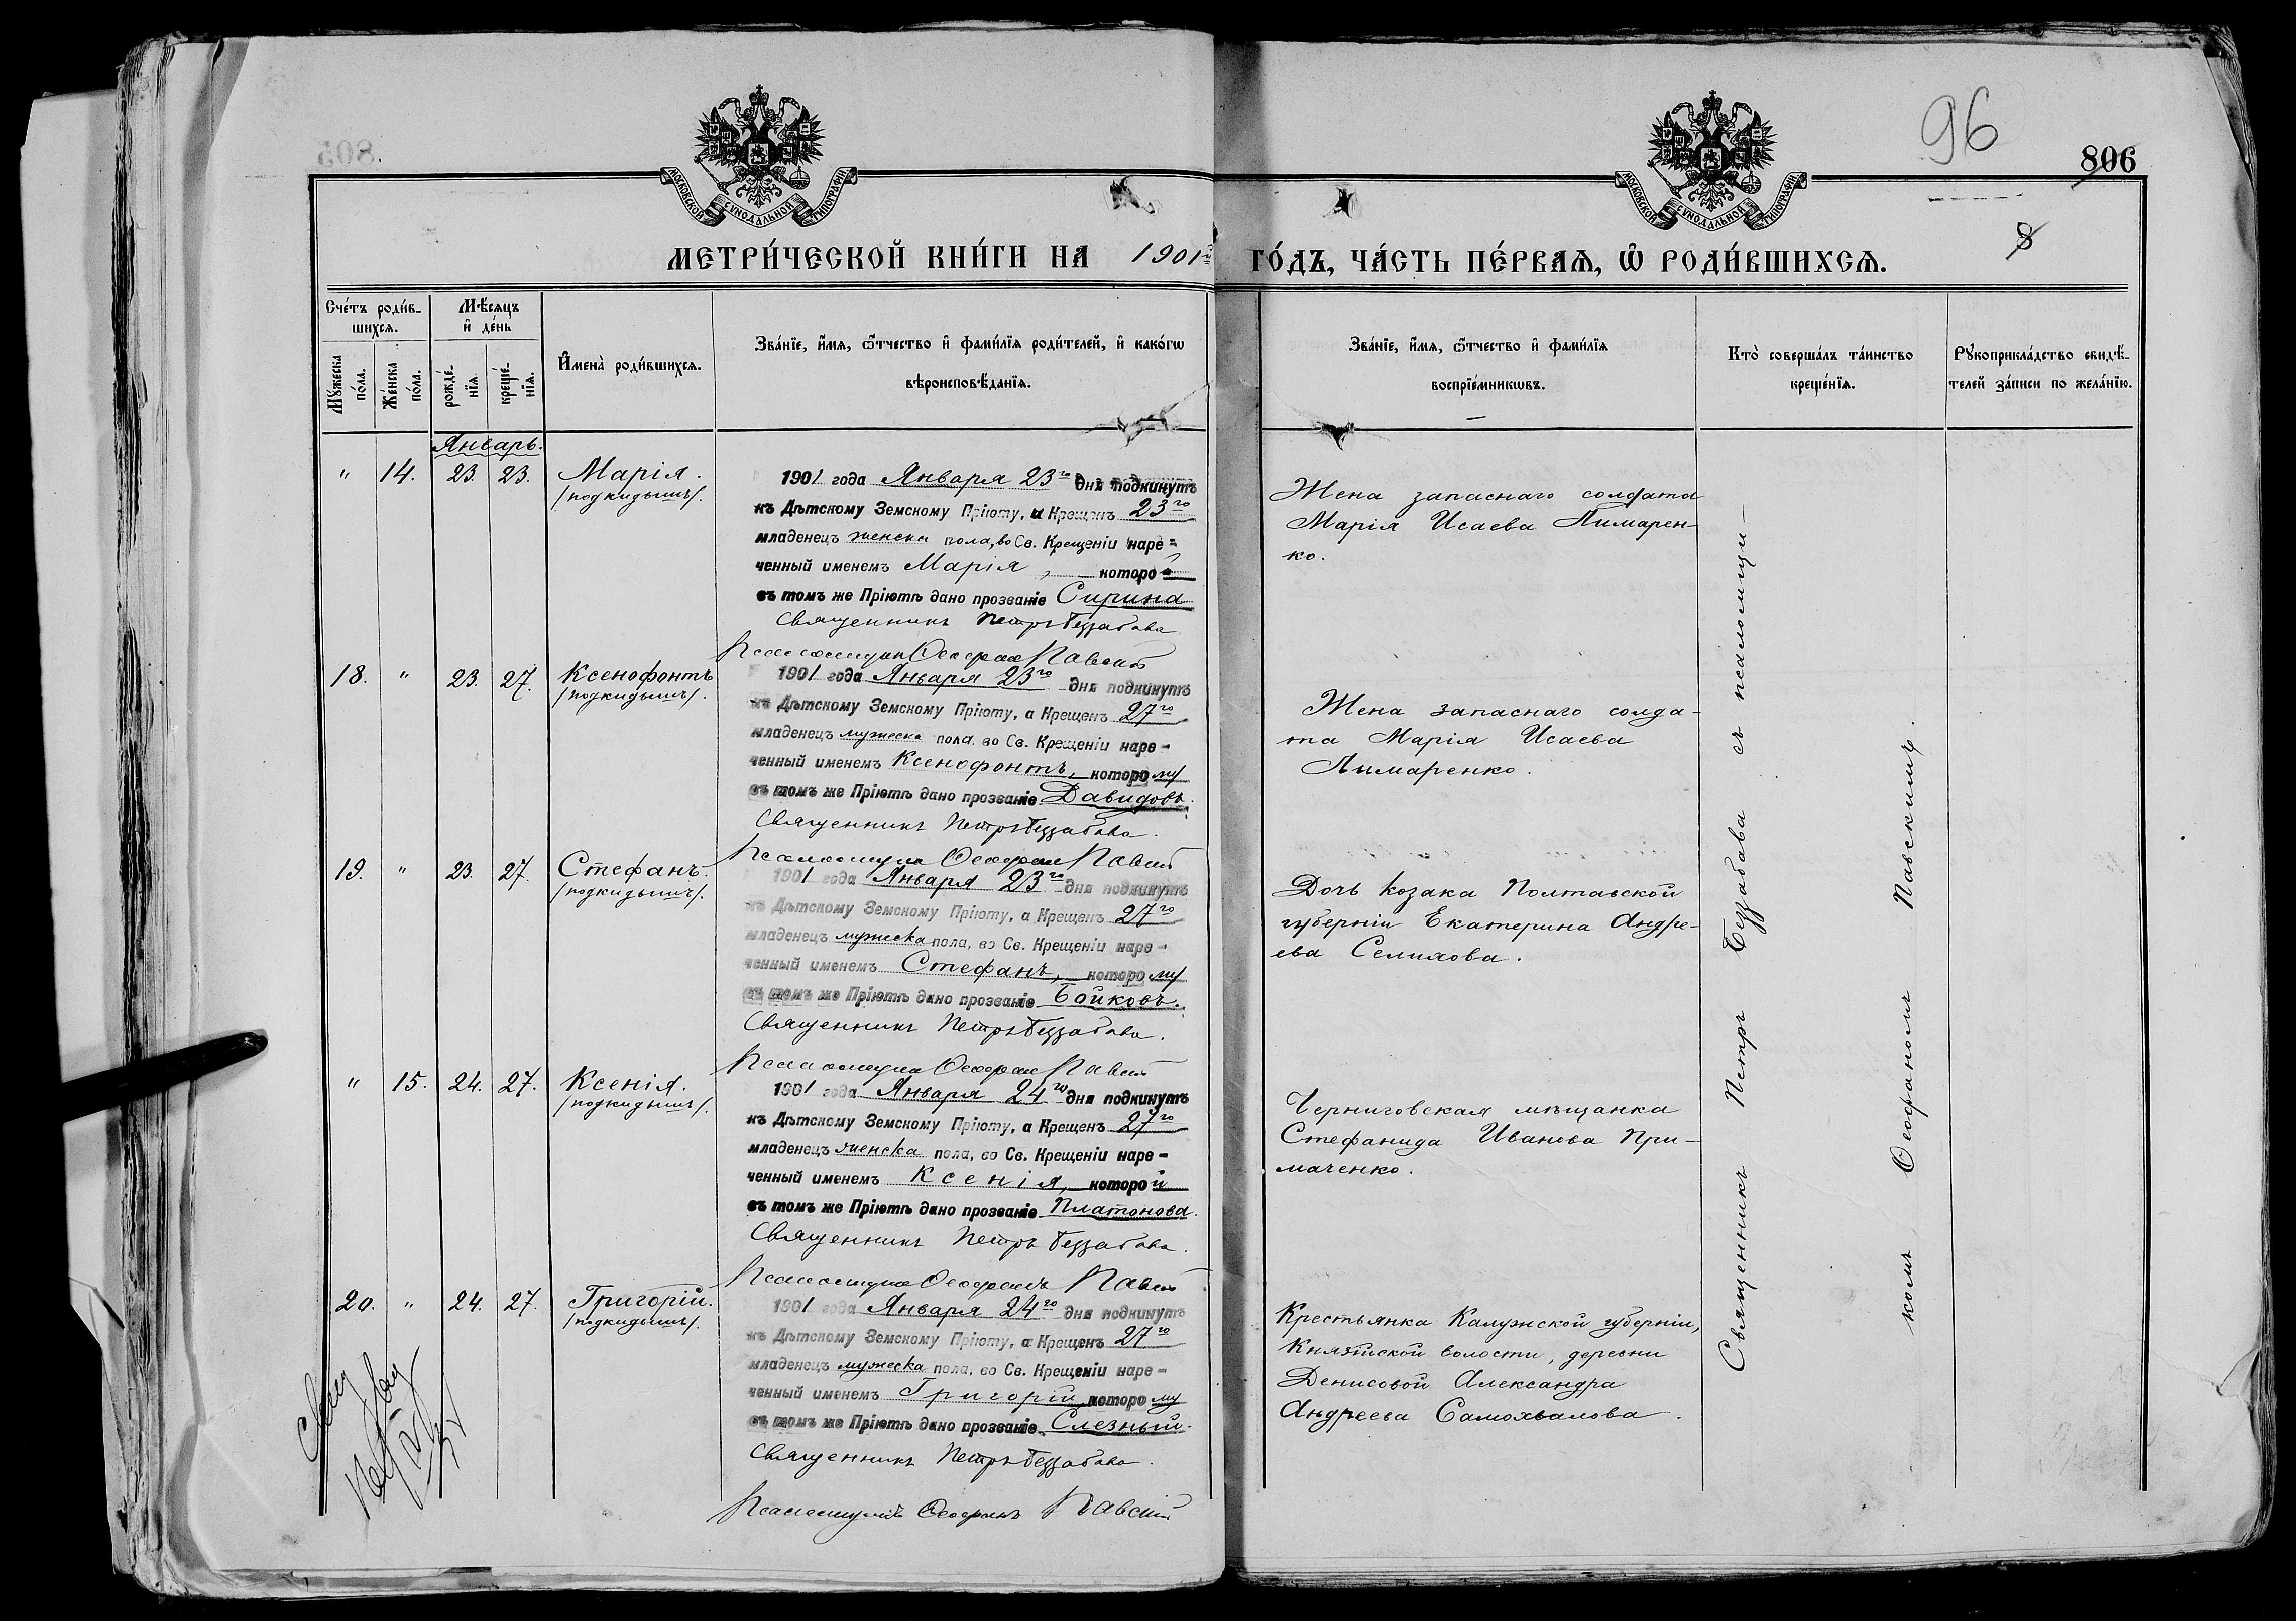 96
806
8
МОСКОВСКОЙ СѴНОДАЛЬНОЙ ТИПОГРАФІИ
МОСКОВСКОЙ СѴНОДАЛЬНОЙ ТИПОГРАФІИ
МЕТРИ́ЧЕСКОЙ КНИ́ГИ НА 1901й ГО́ДЪ, ЧА́СТЬ ПЕ́РВАѦ, Ѽ РОДИ́ВШИХСѦ.
Сче́тъ роди́в-
шихсѧ.
Мꙋжеска по́ла.
Же́нска по́ла.
Мѣ́сѧцъ
и҆ де́нь
рожде́-
нїѧ.
креще́-
нїѧ.
И҆мена̀ роди́вшихсѧ.
Зва́нїе, и҆́мѧ, ѻ҆́тчество и҆ фами́лїѧ роди́телей, и҆ како́гѡ
вѣроисповѣ́данїѧ.
Зва́нїе, и҆́мѧ, ѻ҆́тчество и҆ фами́лїѧ
воспрїе́мникѡвъ.
Кто̀ соверша́лъ та́инство
креще́нїѧ.
Рꙋкоприкла́дство свидѣ́-
телей за́писи по жела́нїю.
Январь.
" 14. 23. 23. Марія.
/подкидышъ/.
1901 года Января 23го дня подкинутъ
къ Дѣтскому Земскому Пріюту, и Крещенъ 23го
младенецъ женска пола, во Св. Крещеніи наре=
ченный именемъ Марія, которой
въ томъ же Пріютѣ дано прозваніе Сирина
Священникъ Петръ Беззабава
Псаломщикъ Ѳеофанъ Павскій
Жена запаснаго солдата
Марія Исаева Лимарен-
ко.
18. " 23. 27. Ксенофонтъ
/подкидышъ/.
1901 года Января 23го дня подкинутъ
къ Дѣтскому Земскому Пріюту, а Крещенъ 27го
младенецъ мужеска пола, во Св. Крещеніи наре-
ченный именемъ Ксенофонтъ, которому
въ томъ же Пріютѣ дано прозваніе Давидовъ.
Священникъ Петръ Беззабава.
Псаломщикъ Ѳеофанъ Павскій
Жена запаснаго солда-
та Марія Исаева
Лимаренко.
19. " 23. 27. Стефанъ.
/подкидышъ/.
1901 года Января 23го дня подкинутъ
къ Дѣтскому Земскому Пріюту, а Крещенъ 27го
младенецъ мужеска пола, во Св. Крещеніи наре-
ченный именемъ Стефанъ, которому
въ томъ же Пріютѣ дано прозваніе Бойковъ.
Священникъ Петръ Беззабава.
Псаломщикъ Ѳеофанъ Павскій
Дочь козака Полтавской
губерніи Екатерина Андре-
ева Селихова.
" 15. 24. 27. Ксенія.
/подкидышъ/.
1901 года Января 24го дня подкинутъ
къ Дѣтскому Земскому Пріюту, а Крещенъ 27го
младенецъ женска пола, во Св. Крещеніи наре-
ченный именемъ Ксенія, которой
въ томъ же Пріютѣ дано прозваніе Платонова.
Священникъ Петръ Беззабава.
Псаломщикъ Ѳеофанъ Павскій
Черниговская мѣщанка
Стефанида Иванова При-
маченко.
20. " 24. 27. Григорій.
/подкидышъ/.
1901 года Января 24го дня подкинутъ
къ Дѣтскому Земскому Пріюту, а Крещенъ 27го
младенецъ мужеска пола, во Св. Крещеніи наре-
ченный именемъ Григорій, которому
въ томъ же Пріютѣ дано прозваніе Слезный.
Священникъ Петръ Беззабава.
Псаломщикъ Ѳеофанъ Павскій
Крестьянка Калужской губерніи,
волости, деревни
Денисовой Александра
Андреева Самохвалова.
Священникъ Петръ Беззабава съ псаломщи-
комъ Ѳеофаномъ Павскимъ.